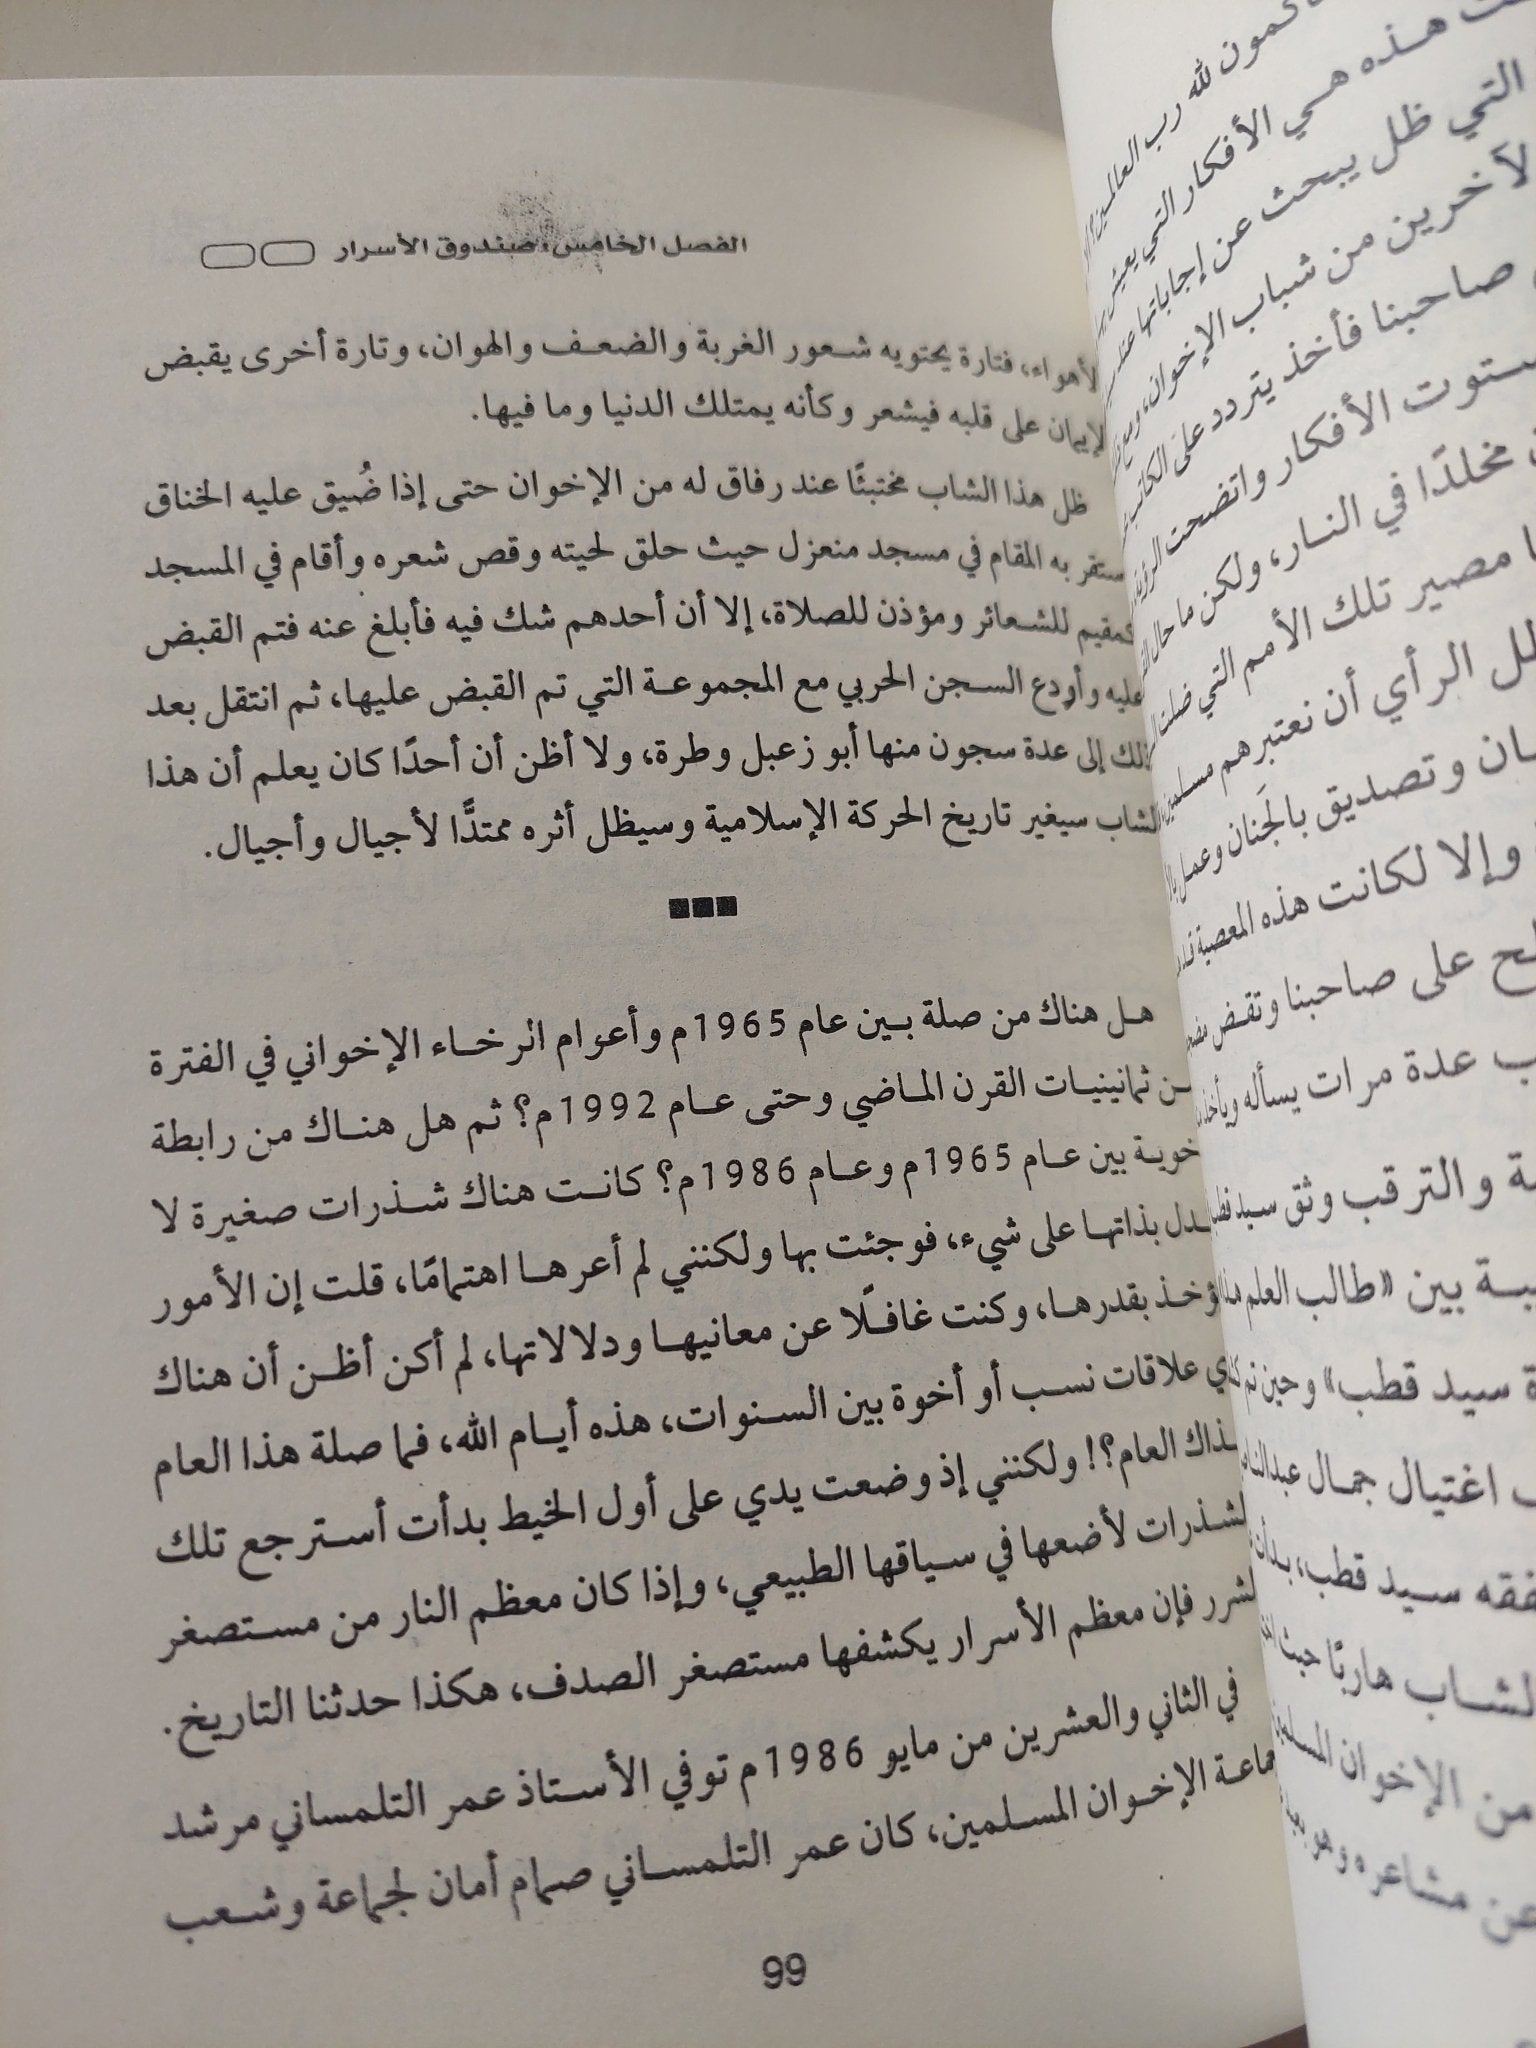 الفصل الخامس: صندوق الأسرار
لأهواء، فتارة يحتويه شعور الغربة والضعف والهوان، وتارة أخرى يقبض
لإيمان على قلبه فيشعر وكأنه يمتلك الدنيا وما فيها.
ظل هذا الشاب مختبئًا عند رفاق له من الإخوان حتى إذا ضُيق عليه الخناق
ستقر به المقام في مسجد منعزل حيث حلق لحيته وقص شعره وأقام في المسجد
كمقيم للشعائر ومؤذن للصلاة، إلا أن أحدهم شك فيه فأبلغ عنه فتم القبض
عليه وأودع السجن الحربي مع المجموعة التي تم القبض عليها، ثم انتقل بعد
ذلك إلى عدة سجون منها أبو زعبل وطرة، ولا أظن أن أحدًا كان يعلم أن هذا
لشاب سيغير تاريخ الحركة الإسلامية وسيظل أثره ممتدًّا لأجيال وأجيال.
هل هناك من صلة بين عام 1965م وأعوام الرخاء الإخواني في الفترة
ـن ثمانينيات القرن الماضي وحتى عام 1992م؟ ثم هل هناك من رابطة
خوية بين عام 1965م وعام 1986م؟ كانت هناك شذرات صغيرة لا
ـدل بذاتها على شيء، فوجئت بها ولكنني لم أعرها اهتمامًا، قلت إن الأمور
ؤخذ بقدرها، وكنت غافلًا عن معانيها ودلالاتها، لم أكن أظن أن هناك
علاقات نسب أو أخوة بين السنوات، هذه أيام الله، فما صلة هذا العام
ـذاك العام؟! ولكنني إذ وضعت يدي على أول الخيط بدأت أسترجع تلك
لشذرات لأضعها في سياقها الطبيعي، وإذا كان معظم النار من مستصغر
لشرر فإن معظم الأسرار يكشفها مستصغر الصدف، هكذا حدثنا التاريخ.
في الثاني والعشرين من مايو 1986م توفي الأستاذ عمر التلمساني مرشد
ماعة الإخوان المسلمين، كان عمر التلمساني صمام أمان لجماعة وشعب
99
ـكمون لله رب العالمين
ـت هذه هي الأفكار التي يعيش
التي ظل يبحث عن إجاباتها عند
لآخرين من شباب الإخوان، ومع
صاحبنا فأخذ يتردد على
ستوت الأفكار واتضحت الرؤية
مخلدًا في النار، ولكن ما حال
ا مصير تلك الأمم التي ضلت
ظل الرأي أن نعتبرهم مسلمين
ـان وتصديق بالجَنان وعمل
وإلا لكانت هذه المعصية
ـلح على صاحبنا وتقض
ـب عدة مرات يسأله ويأخذ
ـة والترقب وثق سيد قطب
ـية بين «طالب العلم هذا
ة سيد قطب» وحين تم
ـب اغتيال جمال عبدالناصر
فقه سيد قطب، بدأت
لشاب هاربًا حيث
من الإخوان المسلمين
عن مشاعره وهو